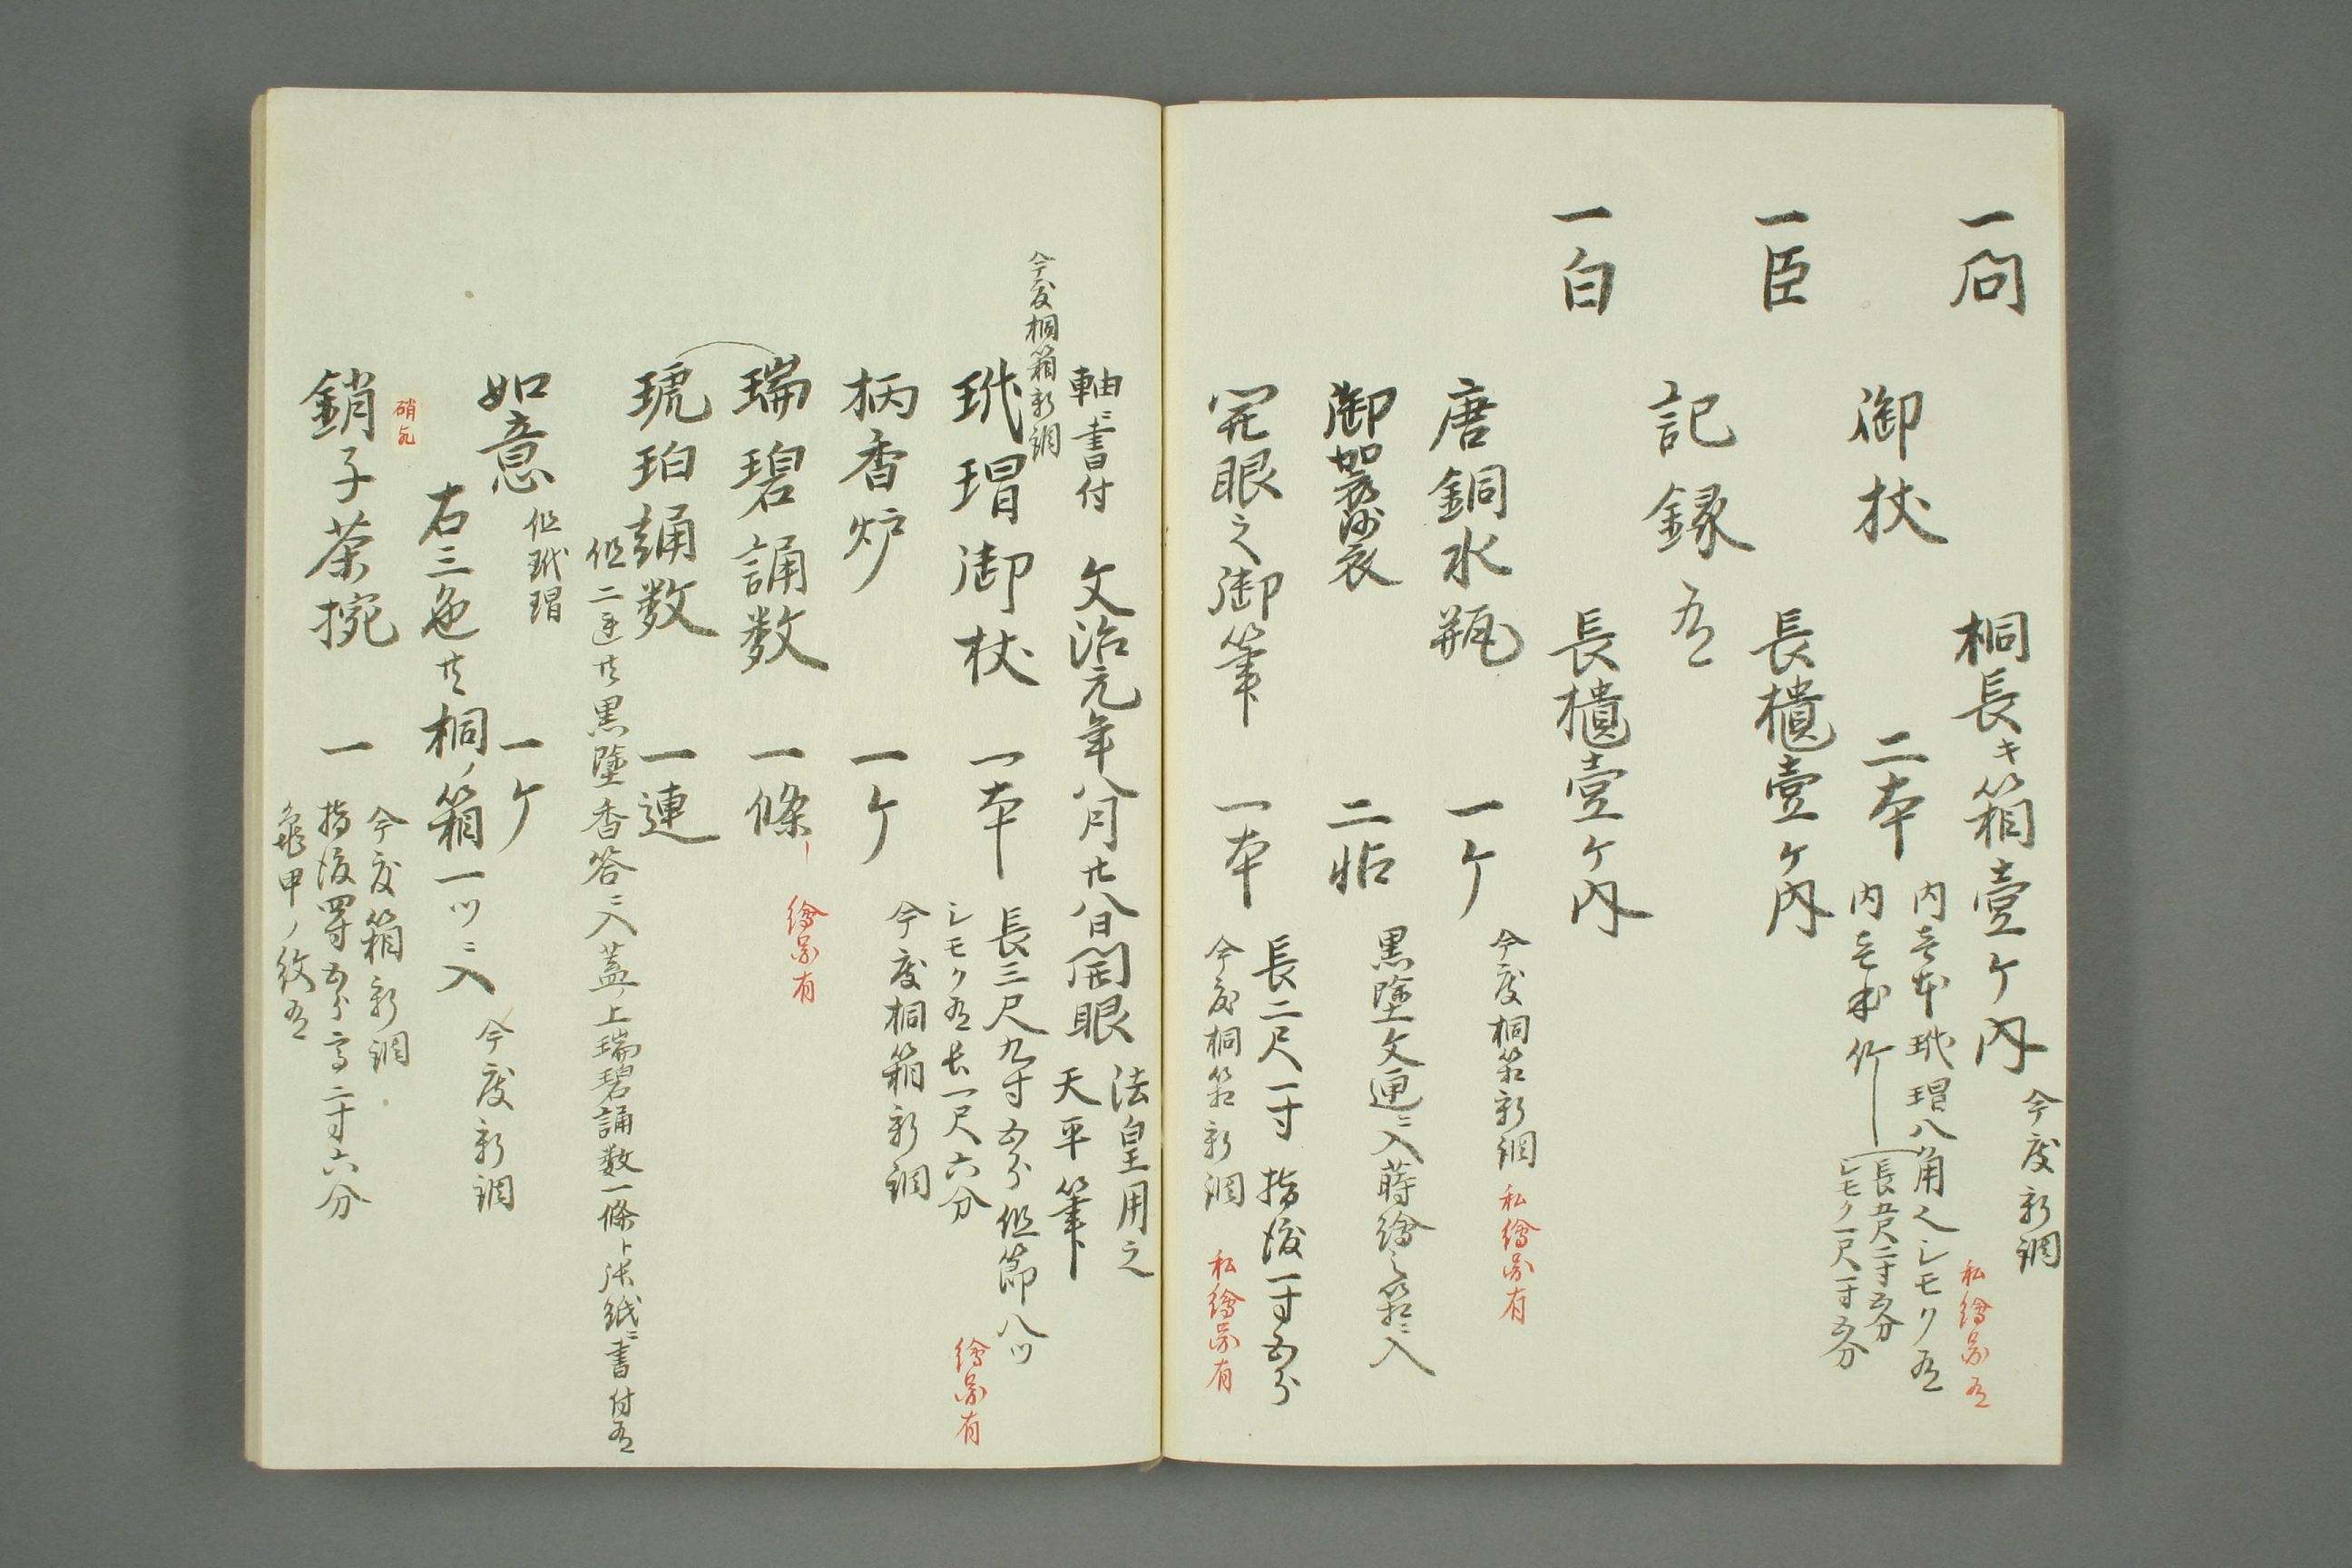 一 問 桐長キ箱壹ケ内 今度新調
御杖 二本 内壱本玳瑁八角ヘシモク有 私繪図有
内壱本竹 長五尺二寸五分
シモク一尺一寸五分
一 臣 長櫃壹ケ内
記録有
一 白 長櫃壹ケ内
唐銅水瓶 一ケ 今度桐箱新調 私繪図有
御袈裟 二帖 黒塗文匣ニ入蒔繪之箱ニ入
開眼之御筆 一本 長二尺一寸 指渡一寸五分
今度桐箱新調 私繪図有
軸ニ書付 文治元年八月廿八日開眼 法皇用之
天平筆
今度桐箱新調
玳瑁御杖 一本 長三尺九寸五分 但節八ツ
シモク有長一尺六分 繪図有
柄香炉 一ケ 今度桐箱新調
瑞碧誦数 一條 繪図有
琥珀誦数 一連
但二連共黒塗香答ニ入蓋ノ上瑞碧誦数一條ト張紙ニ書付有
如意 但玳瑁 一ケ 今度新調
右三色共桐ノ箱一ツニ入
硝
銷子茶挽 一 今度箱新調
指渡四寸五分高二寸六分
亀甲ノ紋有